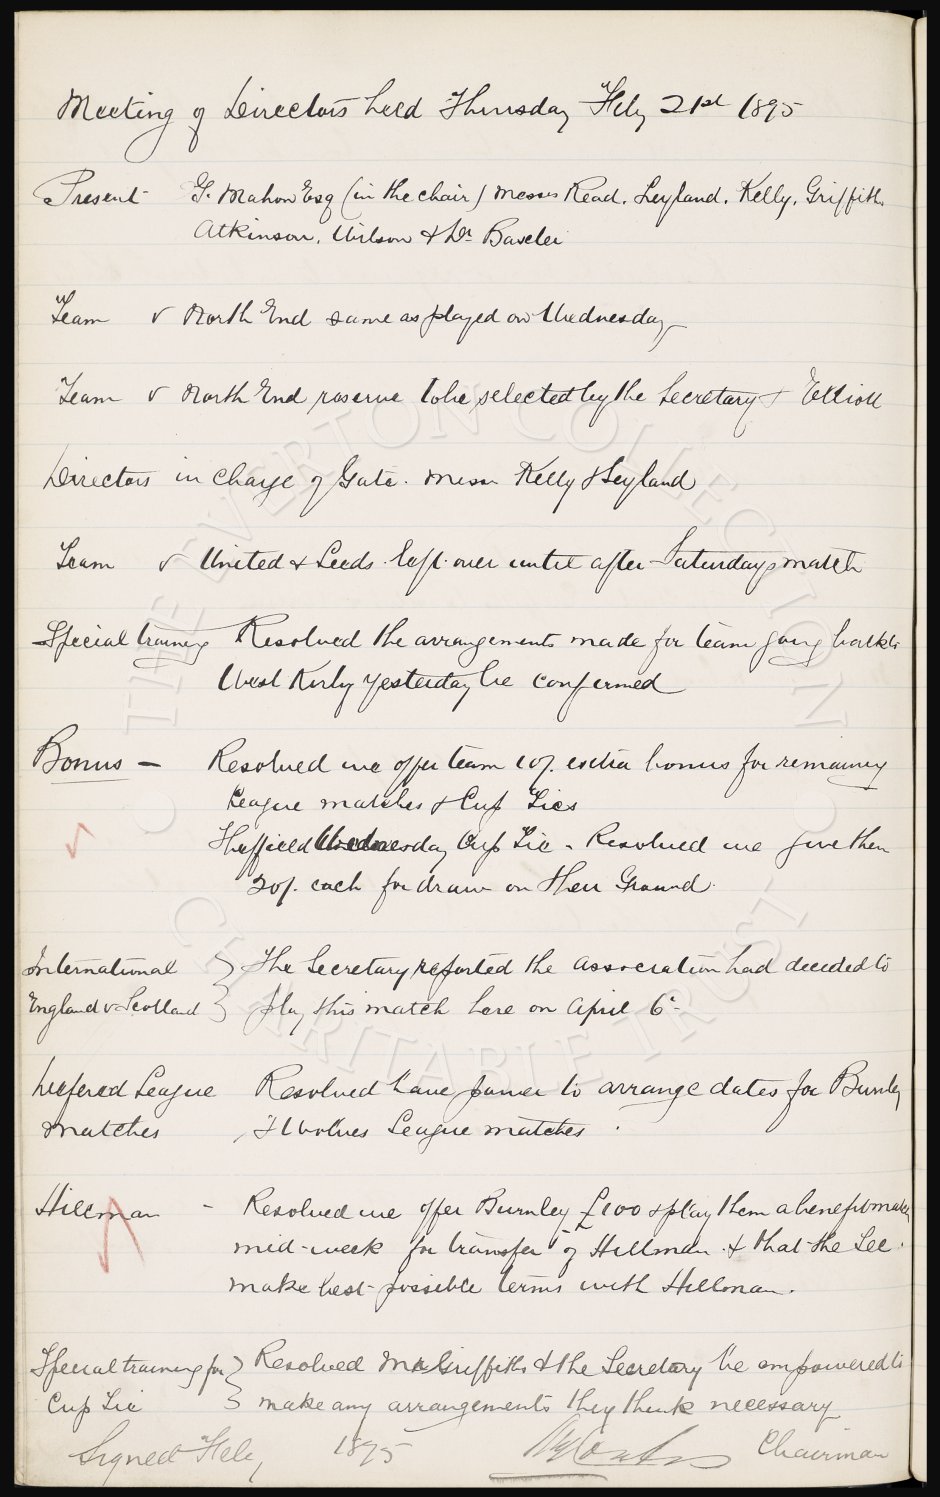 Meeting of Directors held Thursday Feby 21st 1895
Present G. Mahon Esq (in the chair) Messrs Read, Leyland, Kelly, Griffiths
Atkinson, Wilson & Dr Baxter
Team v North End same as played on Wednesday
Team v North End reserve to be selected by the Secretary & Elliott
Directors in charge of Gate. Messrs Kelly & Leyland
Team v United & Leeds left over until after Saturdays match
Special training Resolved the arrangements made for team going back to
West Kirby yesterday be confirmed
Bonus – Resolved we offer team 10/. extra bonus for remaining
League matches & Cup Ties
Sheffield Wednesday Cup Tie – Resolved we give them
20/. each for draw on their Ground
International } The Secretary reported the association had decided to
England v Scotland } play this match here on April 6th
Deferred League Resolved have power to arrange dates for Burnley
Matches & Wolves League matches.
Hillman – Resolved we offer Burnley £100 & play them a benefit match
mid-week for transfer of Hillman. & that the Sec.
make best possible terms with Hillman.
Special training for } Resolved Mr Griffiths & the Secretary be empowered to
Cup Tie } make any arrangements they think necessary
Signed Feby 1895 Chairman
© THE EVERTON COLLECTION CHARITABLE TRUST